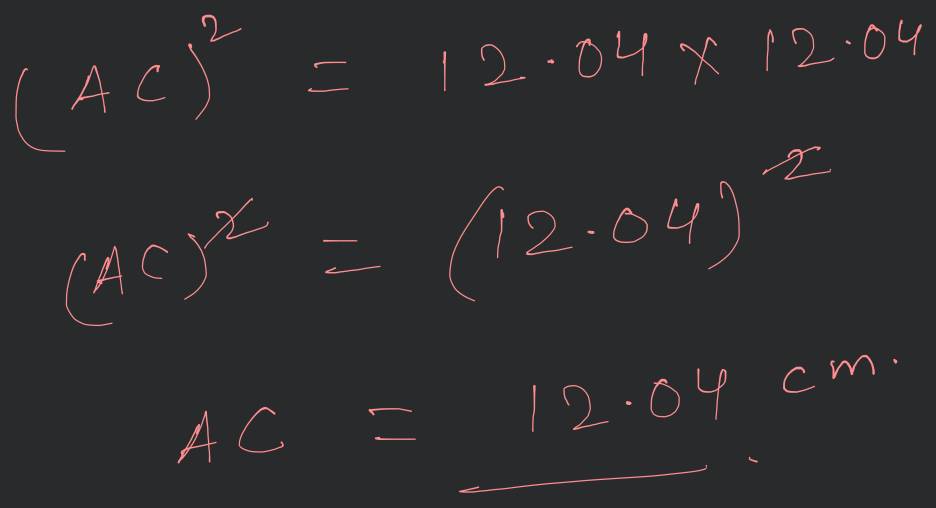 (AC)² = 12.04 × 12.04
(AC)² = (12.04)²
AC = 12.04 cm.